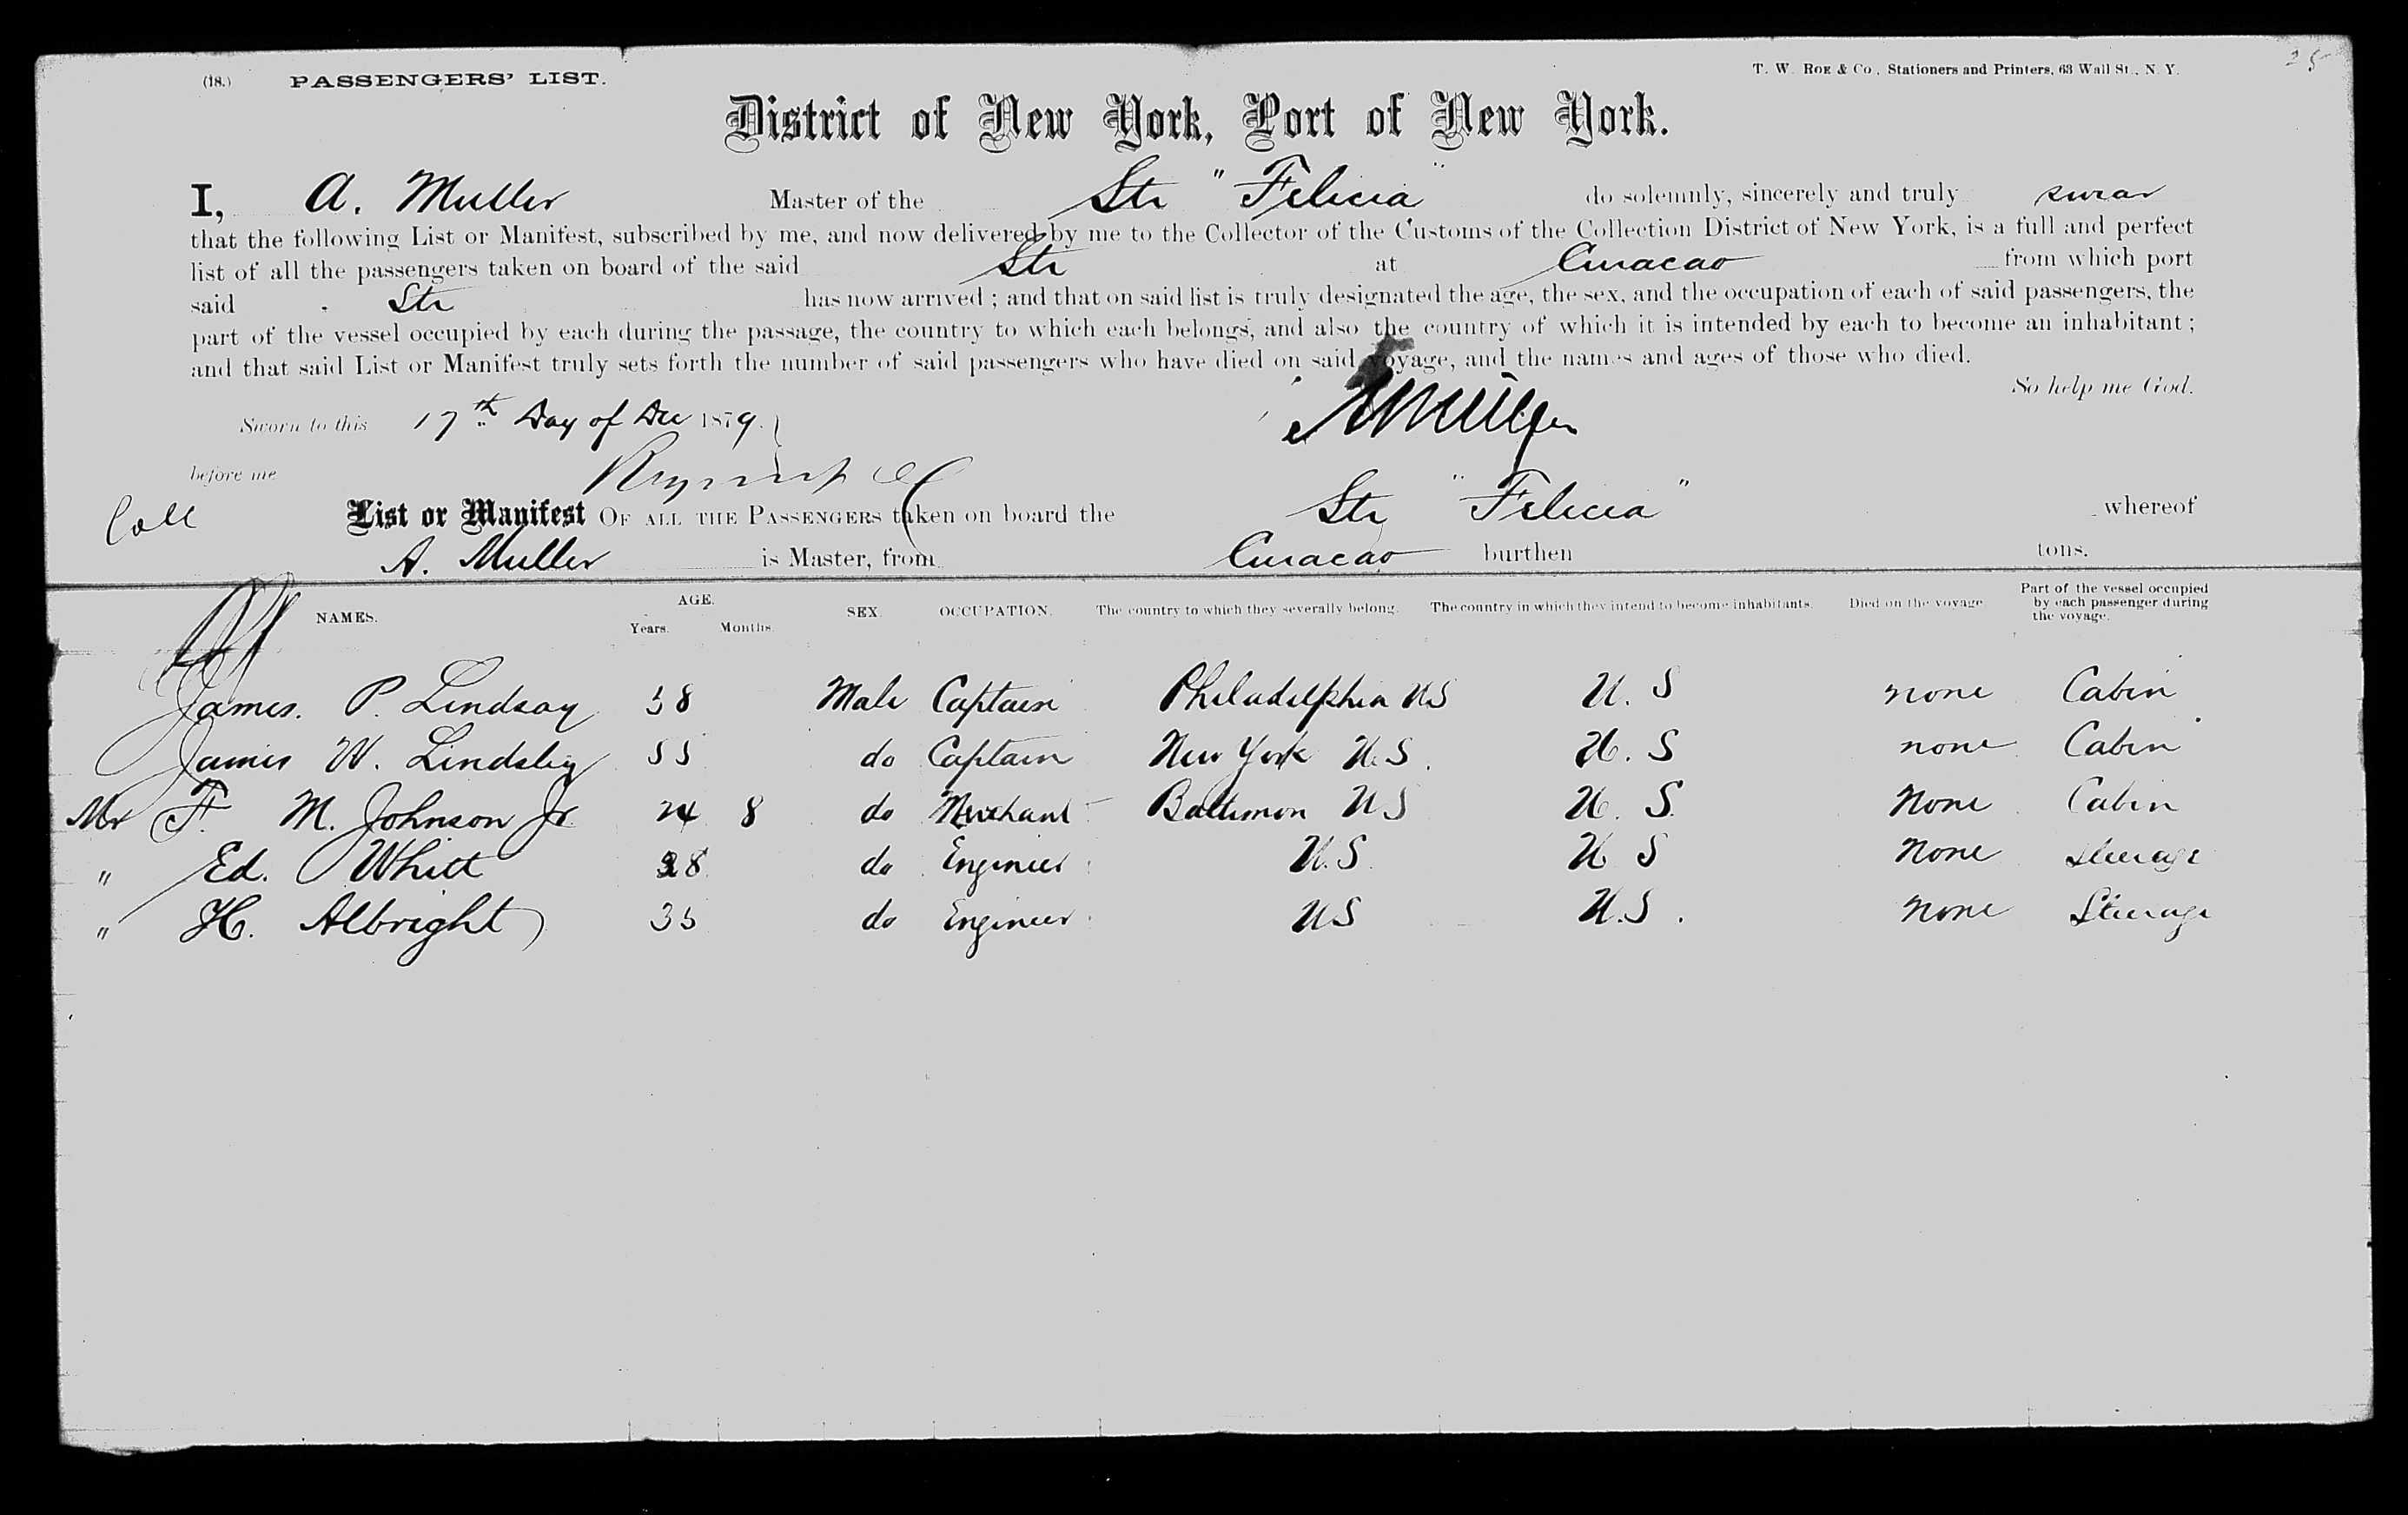 25
(18.) PASSENGERS' LIST. T. W. ROE & Co., Stationers and Printers, 63 Wall St., N. Y.
District of New York, Port of New York.
I, A. Muller Master of the Str "Felicia" do solemnly, sincerely and truly swear
that the following List or Manifest, subscribed by me, and now delivered by me to the Collector of the Customs of the Collection District of New York, is a full and perfect
list of all the passengers taken on board of the said Str at Curacao from which port
said Str has now arrived; and that on said list is truly designated the age, the sex, and the occupation of each of said passengers, the
part of the vessel occupied by each during the passage, the country to which each belongs, and also the country of which it is intended by each to become an inhabitant;
and that said List or Manifest truly sets forth the number of said passengers who have died on said voyage, and the names and ages of those who died.
So help me God.
Sworn to this 17th Day of Dec 1879. AMuller
before me
Coll List or Manifest OF ALL THE PASSENGERS taken on board the Str "Felicia" whereof
A. Muller is Master, from Curacao burthen tons.
NAMES. AGE. Years. Months. SEX. OCCUPATION. The country to which they severally belong. The country in which they intend to become inhabitants. Died on the voyage. Part of the vessel occupied by each passenger during the voyage.
James. P. Lindsay 38 Male Captain Philadelphia US U. S none Cabin
James W. Lindsley 55 do Captain New York U.S. U. S none Cabin
Mr F. M. Johnson Jr. 24 8 do Merchant Baltimore US U. S. None Cabin
" Ed. Whitt 28 do Engineer U.S. U S None Steerage
" H. Albright 35 do Engineer US U.S. None Steerage